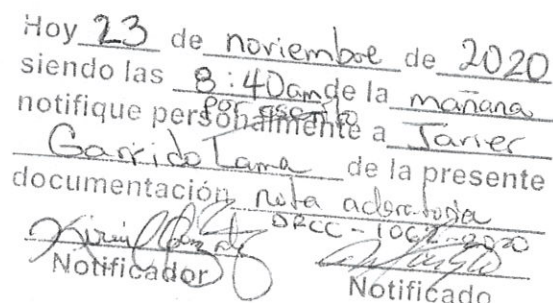 Hoy 23 de noviembre de 2020
siendo las 8:40am de la mañana
por escrito
notifique personalmente a Javier
Garrido Lama de la presente
documentación nota aclaratoria
DRCC-1062-2020
Notificador Notificado